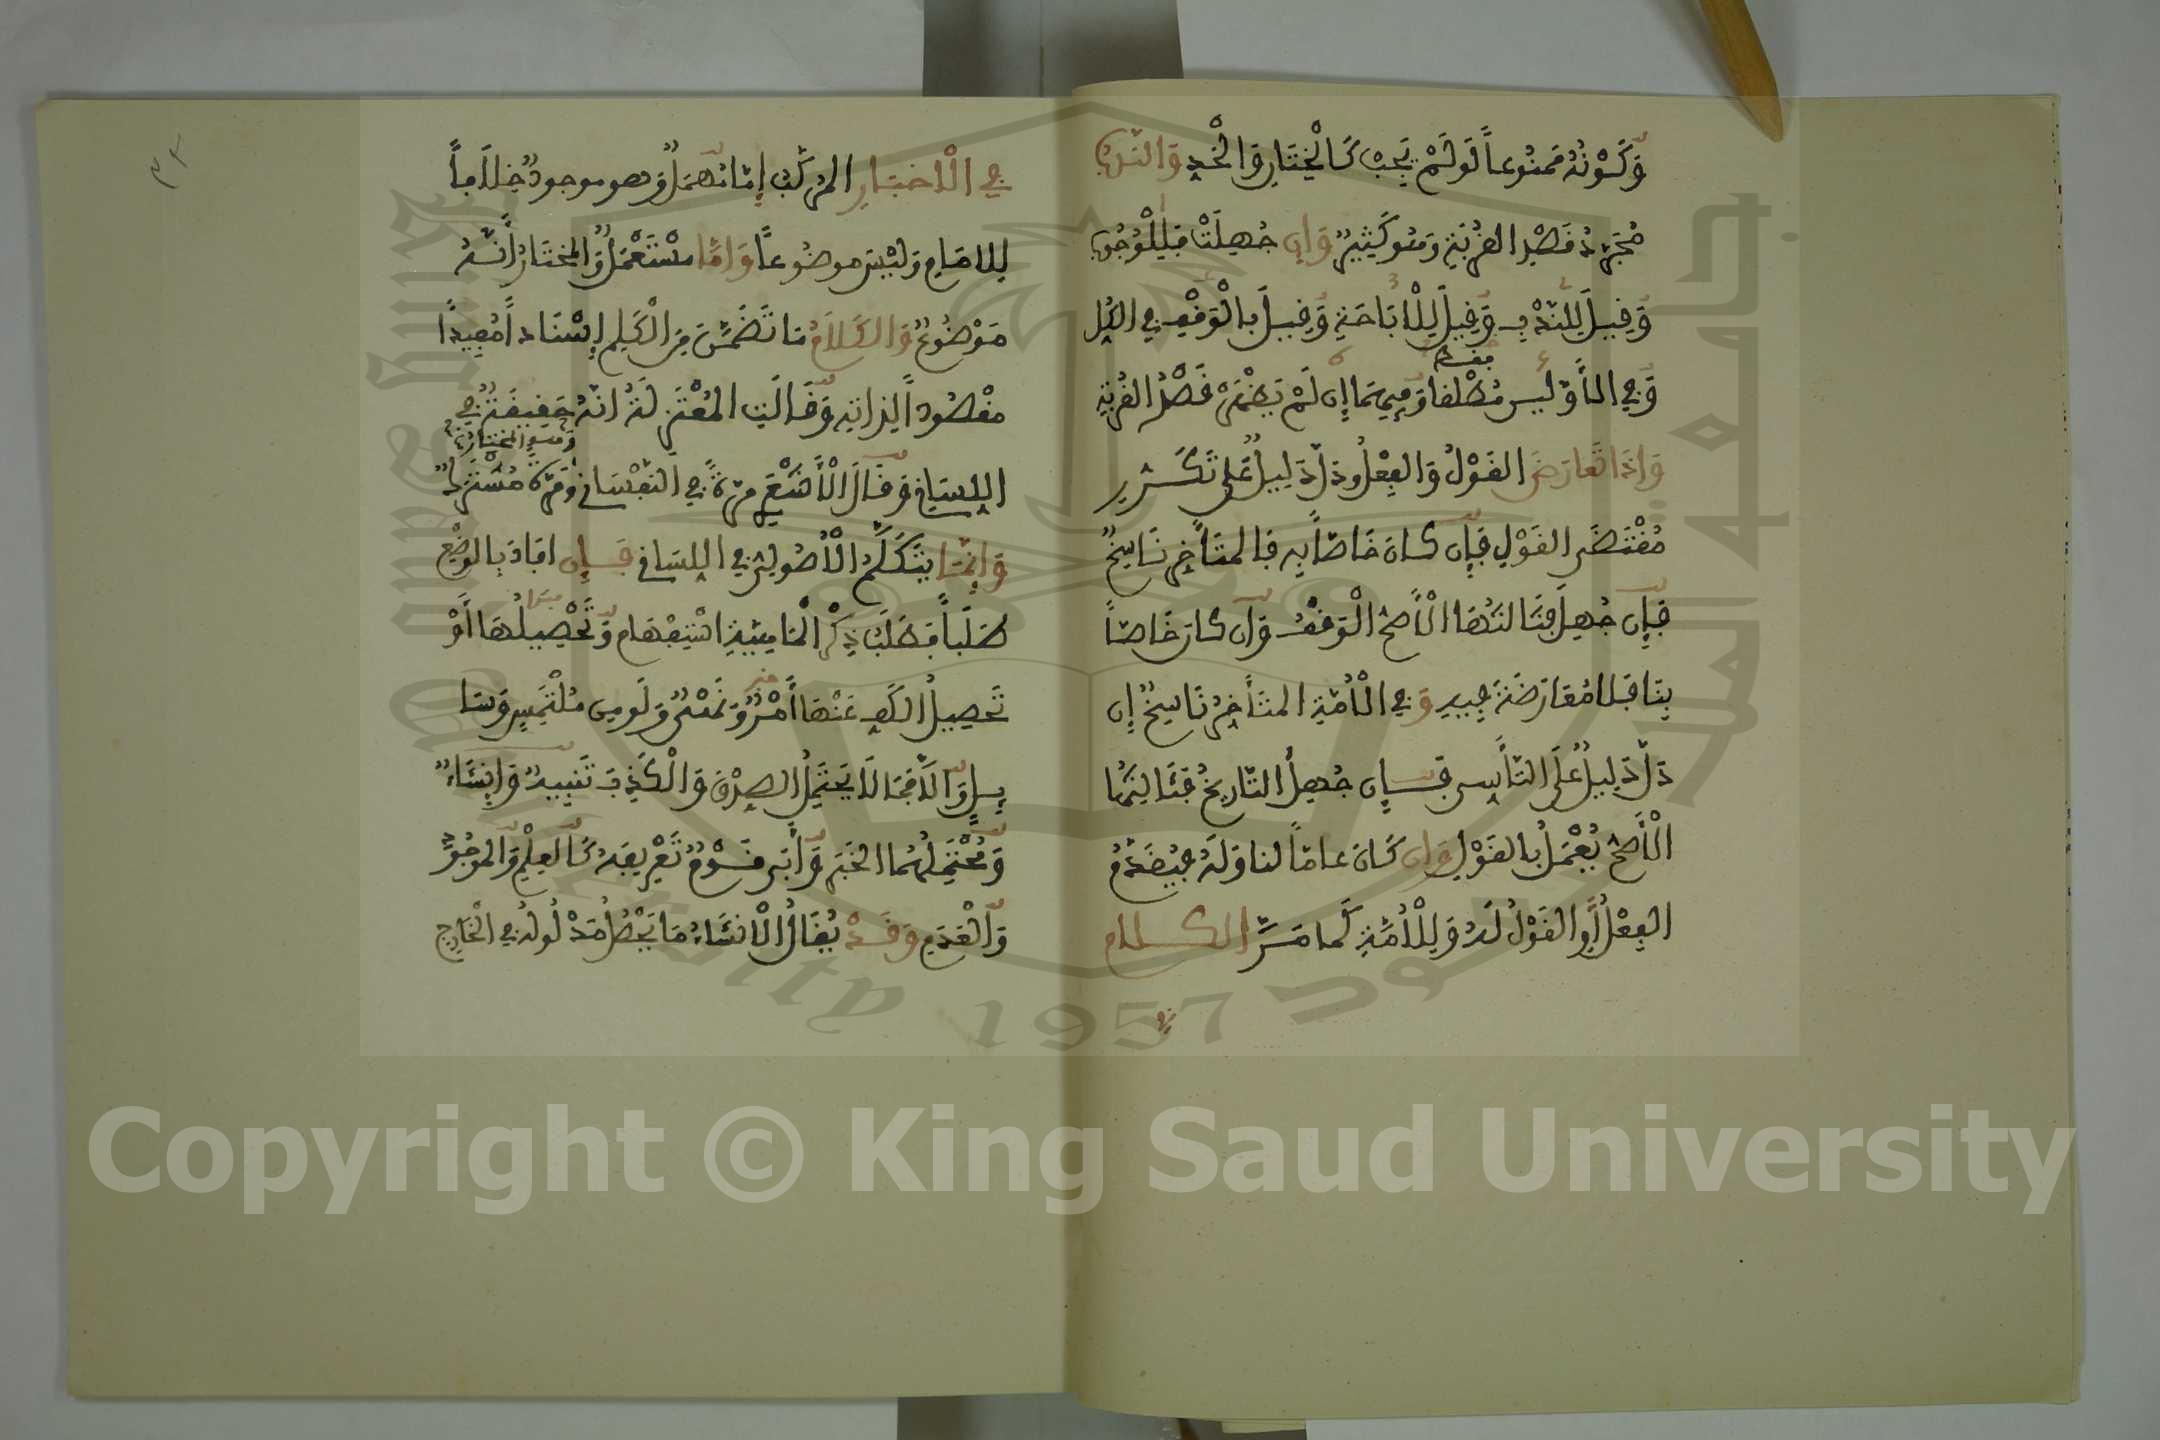 وَّكَوْنُهُ مَمنُوعاً لَو لَمْ يَجِبْ كَالْخِتَانِ وَالْحَدِّ وَالنَّدْبُ
مُجَرَّدُ قَصْدِ القُرْبَةِ وَهُوَ كَثِيرٌ وَإِن جُهِلَتْ فَلِلْوُجُوبِ
وَّقِيلَ لِلنَّدْبِ وَّقِيلَ لِلْإبَاحَةِ وَّقِيلَ بِالْوَقْفِ فِي الكُلِّ
وَّفِي الأَوَّلَيْنِ مُطْلَقاً وَّفِيهِمَا إِن لَمْ يَظْهَرْ قَصْدُ القُرْبَةِ
وَإِذَا تَعَارَضَ القَوْلُ وَالفِعْلُ وَدَلَّ دَلِيلٌ عَلَى تَكَرُّرِ
مُقْتَضَى القَوْلِ فَإِن كَانَ خَاصّاً بِهِ فَالمتَأَخِّرُ نَاسِخٌ
فَإِن جُهِلَ فَثَالثُهَا الْأَصَحُّ الْوَقْفُ وَإِن كَانَ خَاصّاً
بِنَا فَلا مُعَارَضَةَ فِيهِ وَفِي الْأُمَّةِ المتَأَخِّرُ نَاسِخٌ إِن
دَلَّ دَلِيلٌ عَلَى التَّأَسِّي فَإِن جُهِلَ التَّارِيخُ فَثَالِثُهَا
الْأَصَحُّ يُعْمَلُ بِالقَوْلِ وَإِن كَانَ عَامّاً لنا وَلَهُ فَتَقَدُّمُ
الفِعْلِ أَوِ القَوْلِ لَهُ وَلِلْأُمَّةِ كَمَا مَرَّ الكلام
في
٣٢
فِي الْأَخبَارِ المركَّبُ إِمَّا مُهْمَلٌ وَّهو موجودٌ خِلَافاً
لِلامَامِ وَلَيْسَ موضُوعاً وَإِمَّا مسْتَعْمَلٌ وَّالمختَارُ أَنَّهُ
مَوْضُوعٌ وَالكَلَامُ مَا تَضَمَّنَ مِنَ الْكَلِمِ إِسْنَاداً مُفِيداً
مقْصُوداً لِذَاتِهِ وَّقَالَتِ المُعْتَزِلَةُ انَّهُ حَقِيقَةٌ فِي
اللِّسَانِي وَّقَالَ الْأَشْعَرِي مَرَّةً فِي النَّفْسَانِي وَهُوَ المختَارُ وَمَرَّةً مُشْتَرَكٌ
وَإِنَّمَا يَتَكَلَّمُ الْأُصُولِيُّ فِي اللِّسَانِي فَإِن افَادَ بِالوَضْعِ
طَلَباً فَطَلَبُ ذِكْرِ الْمَاهِيَّةِ اسْتِفْهَام وَّتَحْصِيلُهَا أَوْ
تَحْصِيلُ الكَفِّ عَنْهَا أَمْرٌ وَنَهْيٌ وَلَو مِن مُلْتَمِسٍ وَسَا
ئِلٍ وَّإِلَّا فَمَا لَا يَحْتَمِلُ الصِّدْقَ وَالْكَذِبَ تَنْبِيهٌ وَإِنشَاءٌ
وَّمُحْتَمِلُهُمَا الخَبَرُ وَّأَبَى قَوْمٌ تَعْرِيفَهُ كَالعِلْمِ وَالوُجُودِ
وَّالْعَدَمِ وَقَدْ يُقَالُ الْانشَاءُ مَا يَحْصُلُ مَدْلُولُهُ فِي الْخَارِجِ